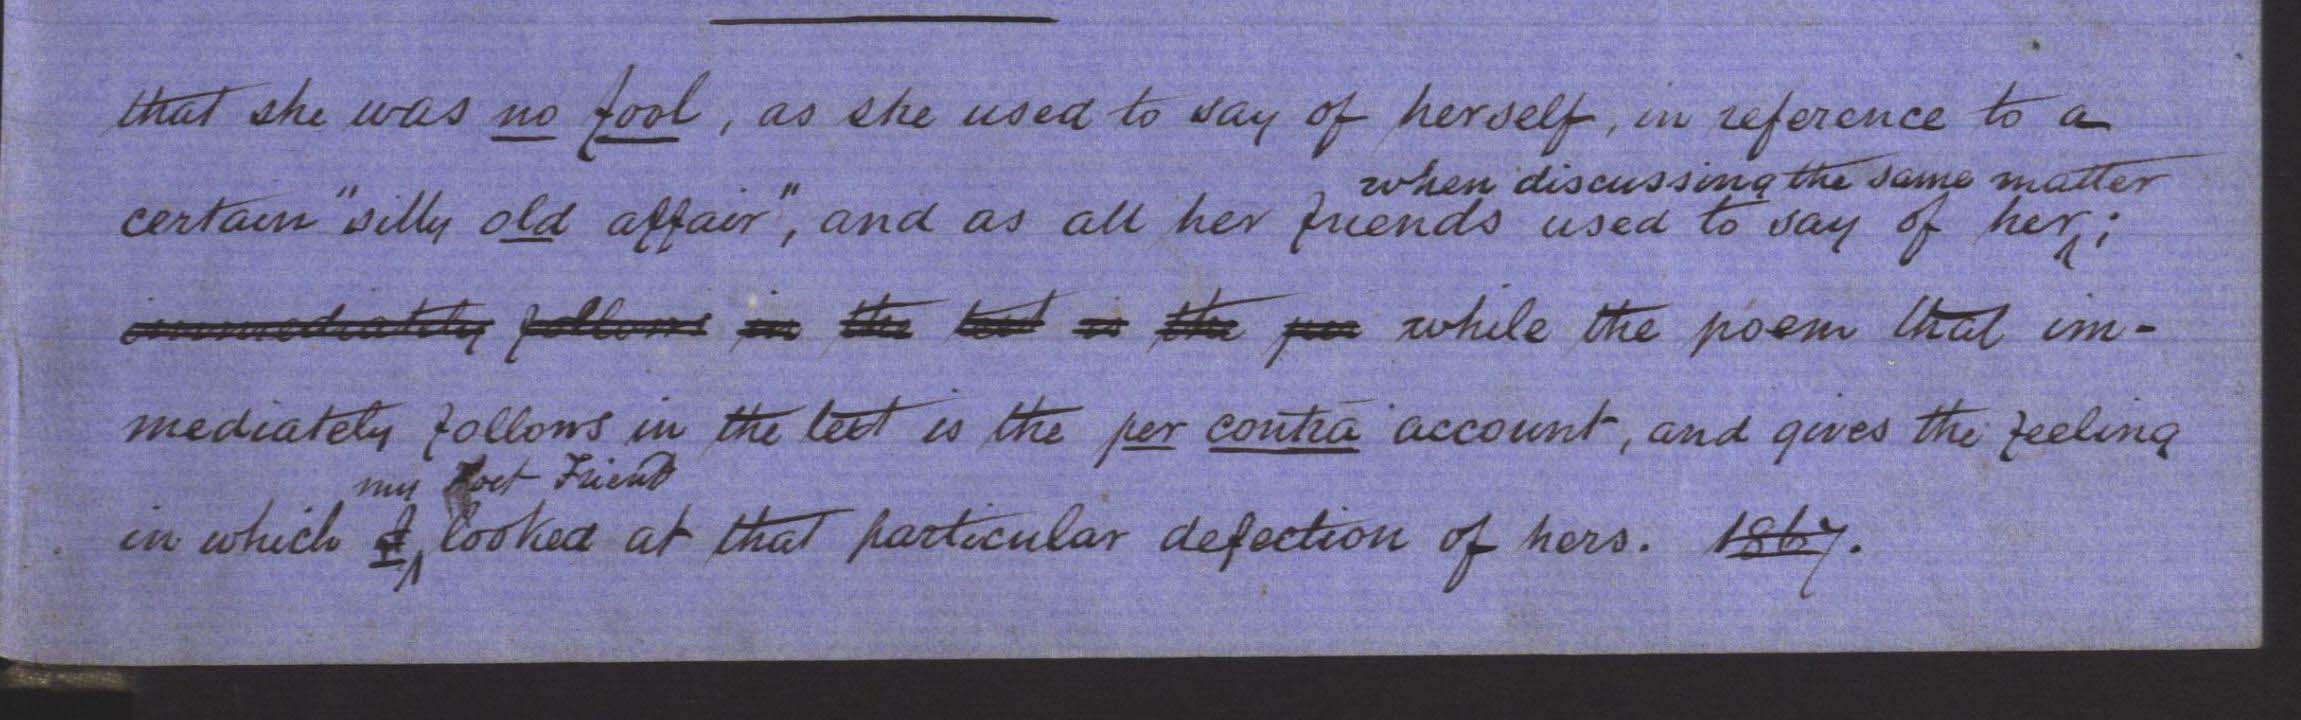 that she was no fool, as she used to say of herself, in reference to a
when discussing the same matter
certain "silly old affair", and as all her friends used to say of her;
immediately follows in the text is the per while the poem that im-
mediately follows in the text is the per contra account, and gives the feeling
my Poet Friend
in which I looked at that particular defection of hers. 1867.